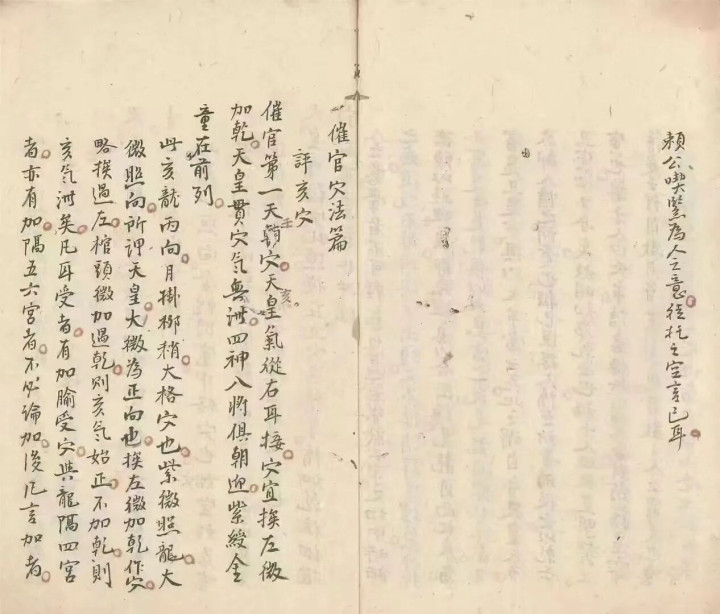 賴公喫緊為人之意徒托之空言已耳
催官穴法篇
評亥穴
催官第一天輔穴天皇氣從右耳接穴宜挨左微
壬
亥
加乾天皇貫穴氣無洩四神八將俱朝迎紫綬金
童在前列
此亥龍丙向月掛柳稍大格穴也紫微照龍大
微照向所謂天皇大微為正向也挨左微加乾作穴
略挨過左棺頭微加過乾則亥氣始正不加乾則
亥氣洩矣凡耳受者有加腧受穴與龍隔四宮
者亦有加隔五六宮者不必論加後凡言加者